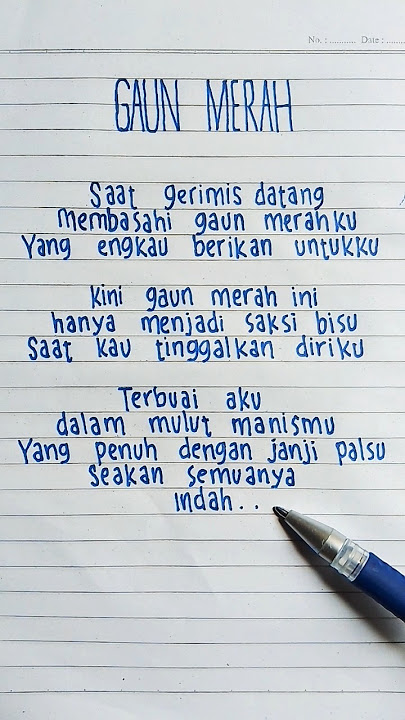 No. : ........... Date : ........
GAUN MERAH
Saat gerimis datang
Membasahi gaun merahku
Yang engkau berikan untukku
Kini gaun merah ini
hanya menjadi saksi bisu
Saat kau tinggalkan diriku
Terbuai aku
dalam mulut manismu
Yang penuh dengan janji palsu
Seakan semuanya
Indah . .